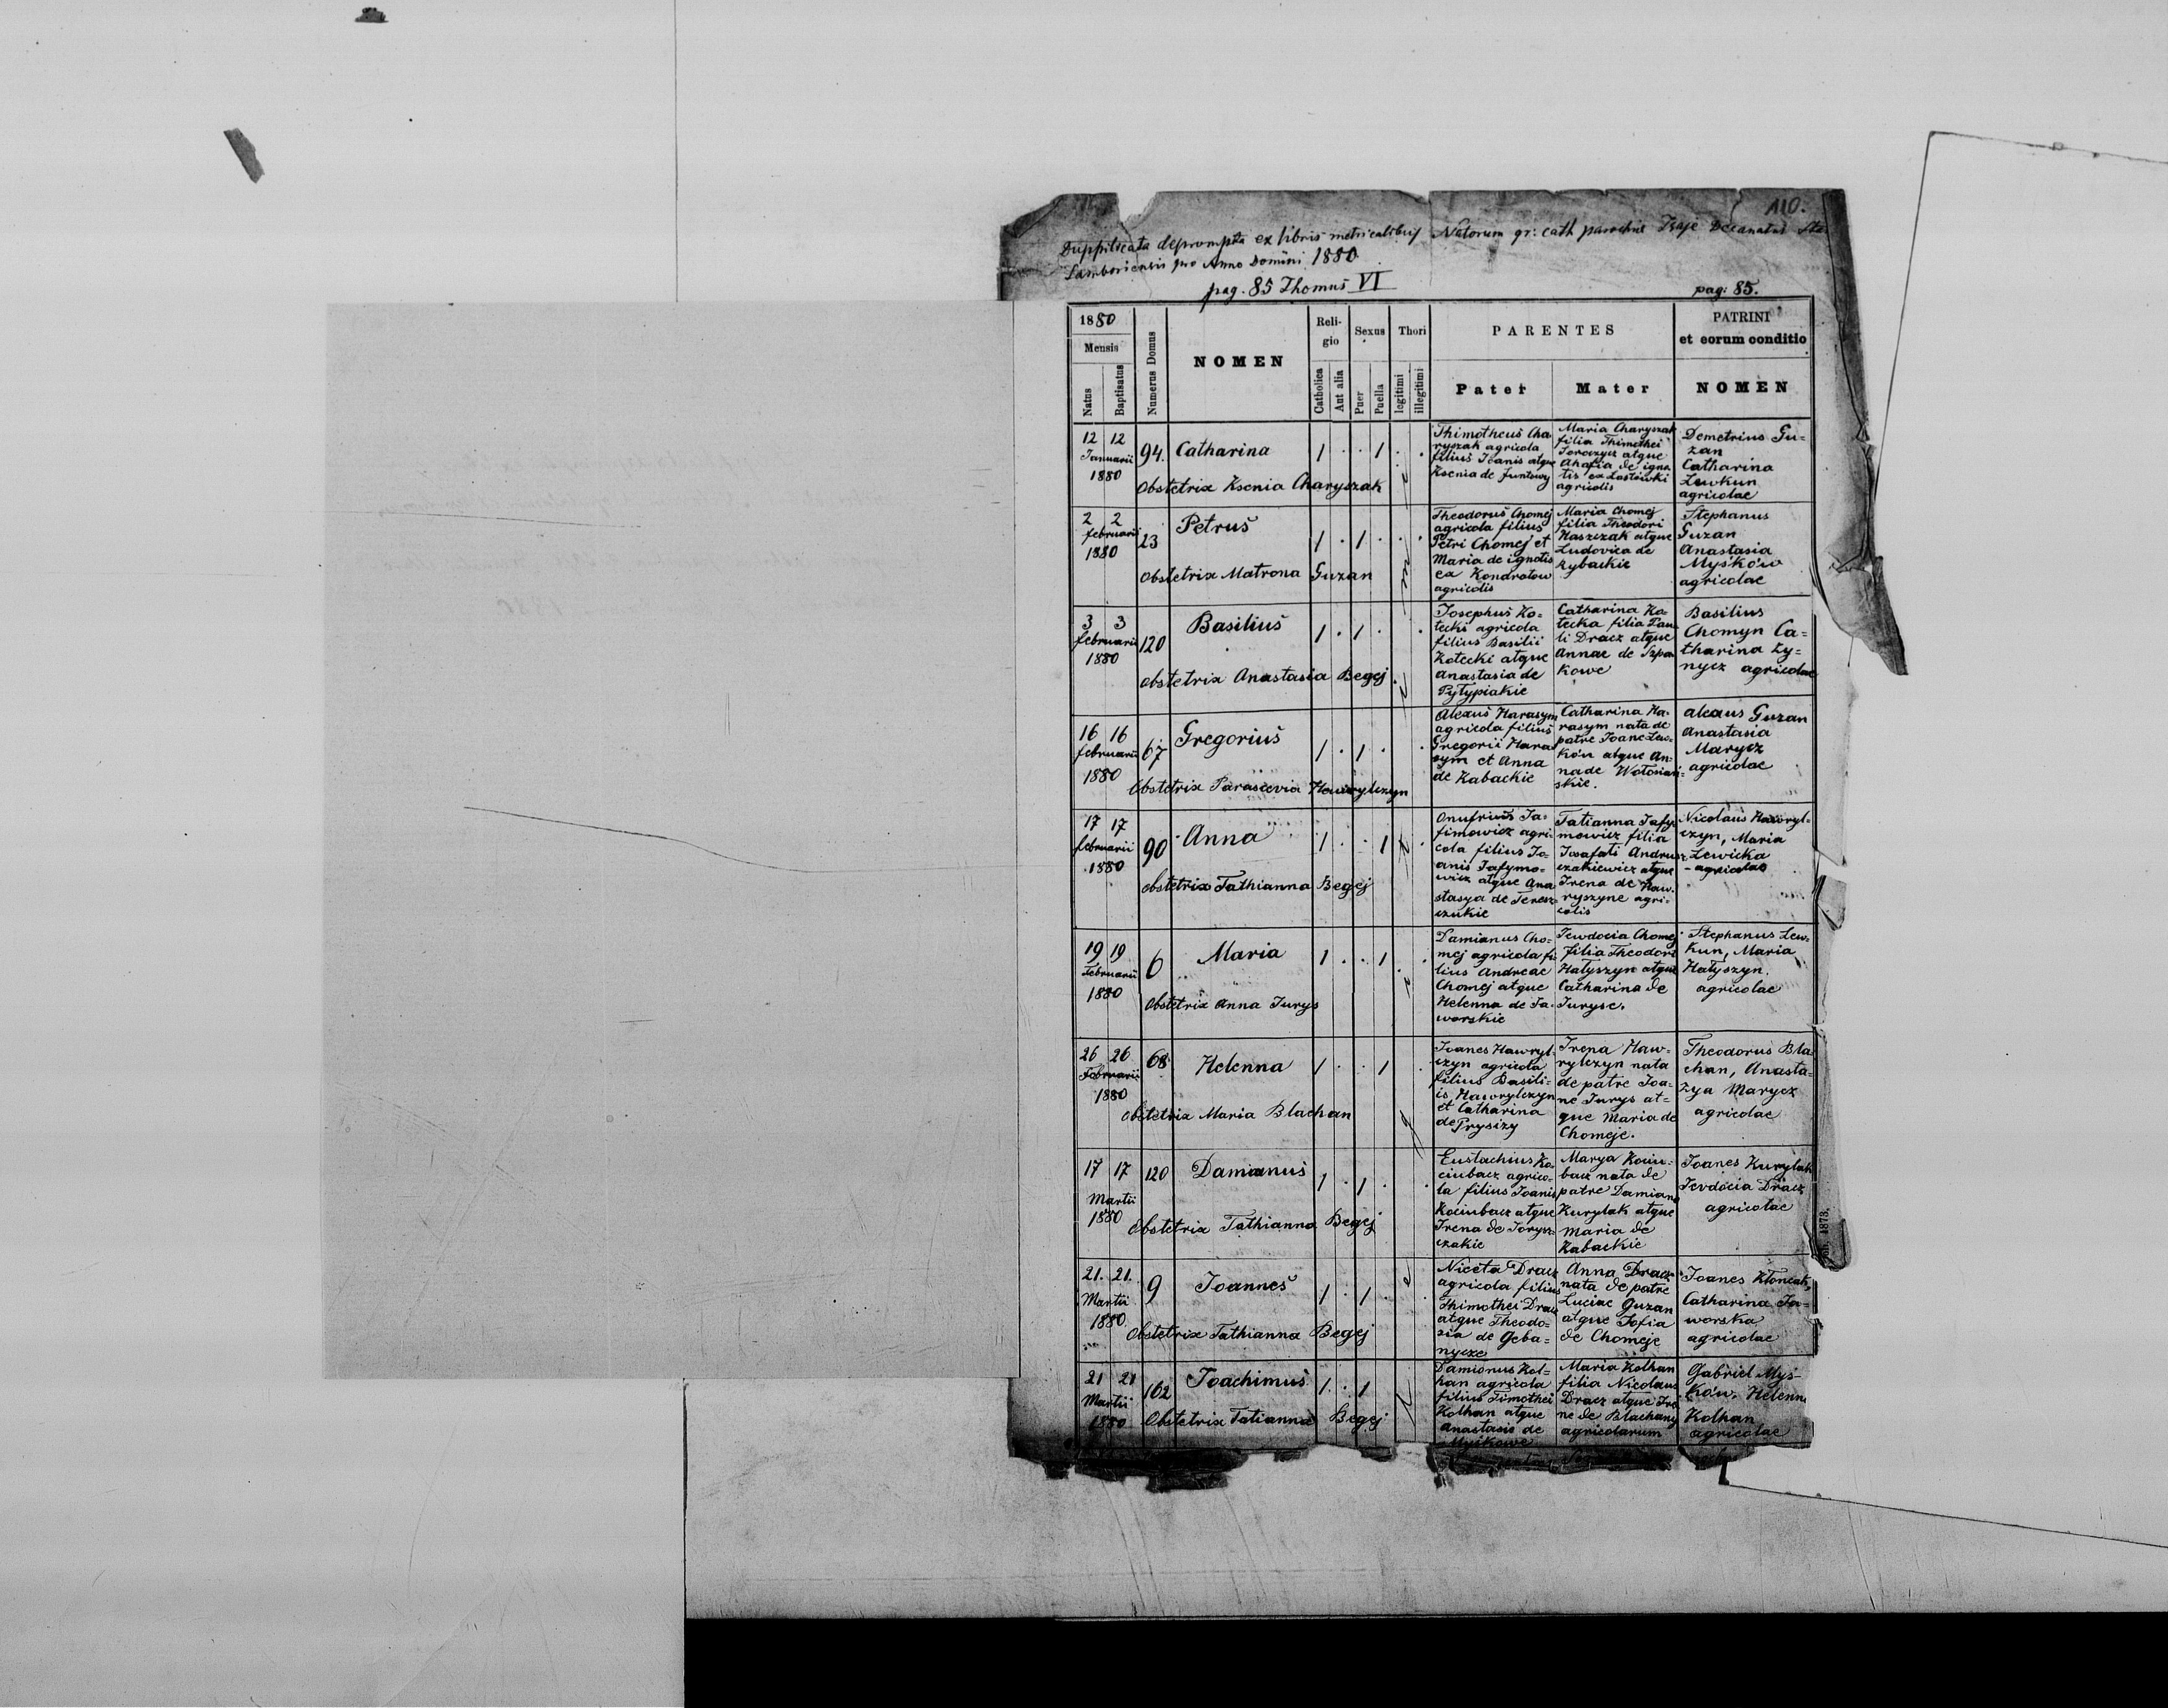 110.
Duppilicata deprompta ex libris metricalibus Natorum gr: cath parochie Isaje Decanatus
Samboriensis pro Anno Domini 1880
pag. 85 Thomus VI
pag: 85.
1880
Mensis
Natus
Baptisatus
Numerus Domus
NOMEN
Reli-
gio
Catholica
Aut alia
Sexus
Puer
Puella
Thori
legitimi
illegitimi
PARENTES
Pater
Mater
PATRINI
et eorum conditio
NOMEN
12 12
Januarii
1880
94.
Catharina
1 . . 1 . .
Obstetrix Ksenia Charyszak
Thimotheus Cha
ryszak agricola
filius Joanis atque
Ksenia de Juntowy
Maria Charyszak
filia Thimothei
Torczycz atque
Ahafia de igno
tis ex Lastówki
agricolis
Demetrius Gu=
zan
Catharina
Lewkun
agricolae
2 2
februarii
1880
23
Petrus
1 . 1 . . .
Obstetrix Matrona Guzan
Theodorus Chomej
agricola filius
Petri Chomej et
Maria de ignotis
ex Kondratow
agricolis
Maria Chomej
filia Theodori
Haszczak atque
Ludovica de
Rybackie
Stephanus
Guzan
Anastasia
Myśków
agricolae
3 3
februarii
1880
120
Basilius
1 . 1 . .
obstetrix Anastasia Begej
Josephus Ko=
tecki agricola
filius Basilii
Kotecki atque
Anastasia de
Pytypiakie
Catharina Ko=
tecka filia Pau
li Dracz atque
Annae de Szpa
kowe
Basilius
Chomyn Ca=
tharina Ly=
nycz agricolae
16 16
februarii
1880
67
Gregorius
1 . 1 . .
Obstetrix Parascevia Hawrylczyn
Alexius Harasym
agricola filius
Gregorii Hara
sym et Anna
de Kabackie
Catharina Ha-
rasym nata de
patre Joane Lew-
ków atque An-
na de Wołosian-
skie.
Alexius Guzan
Anastasia
Marycz
agricolae
17 17
februarii
1880
90
Anna
1 . . 1 .
obstetrix Tathianna Begej
Onufrius Ja-
fimowicz agri-
cola filius Jo-
anis Jafymo-
wicz atque Ana
stasya de Teresz-
czukie
Tatianna Jafy
mowicz filia
Josafati Andrusz
czakiewicz atque
Irena de Haw-
ryszyne agri-
colis
Nicolaus Hawryl=
czyn, Maria
Lewicka
- agricolae
19 19
Februarii
1880
6
Maria
1 . . 1 .
Obstetrix Anna Jurys
Damianus Cho-
mej agricola fi
lius Andreae
Chomej atque
Helenna de Ja-
worskie
Jewdocia Chomej
filia Theodori
Hatyszyn atque
Catharina de
Juryse.
Stephanus Lew-
kun, Maria
Hatyszyn.
agricolae
26 26
Februarii
1880
68
Helenna
1 . . 1 .
Obstetrix Maria Blachan
Joanes Hawryl-
czyn agricola
filius Basili-
is Hawrylczyn
et Catharina
de Prysizy
Irena Haw-
rylczyn nata
de patre Joa-
ne Jurys at-
que Maria de
Chomeje.
Theodorus Bla
chan, Anasta-
zya Marycz
agricolae
17 17
Martii
1880
120
Damianus
1 . 1 . .
Obstetrix Tathianna Begej
Eustachius Ko
ciubacz agrico-
la filius Joanis
Kociubacz atque
Irena de Jorysz
czakie
Marya Kociu-
bacz nata de
patre Damiano
Kurylak atque
Maria de
Kabackie
Joanes Kurylak
Jevdocia Dracz
agricolae
21. 21.
Martii
1880.
9
Joannes
1 . 1 . .
Obstetrix Tathianna Begej
Niceta Dracz
agricola filius
Thimothei Dracz
atque Theodo-
zia de Geba-
nycze
Anna Dracz
nata de patre
Luciae Guzan
atque Zofia
de Chomeje
Joanes
Catharina Ja-
worska
agricolae
21 21
Martii
1880
162
Joachimus
1 . 1
Obstetrix Tatianna Begej
Damianus Kol-
han agricola
filius Timothei
Kolhan atque
Anastasia de
Myśkowe
Maria Kolhan
filia Nicolaus
Dracz atque Ire
ne de Blachany
agricolarum
Gabriel Myś-
ków, Helenna
Kolhan
agricolae
1873.